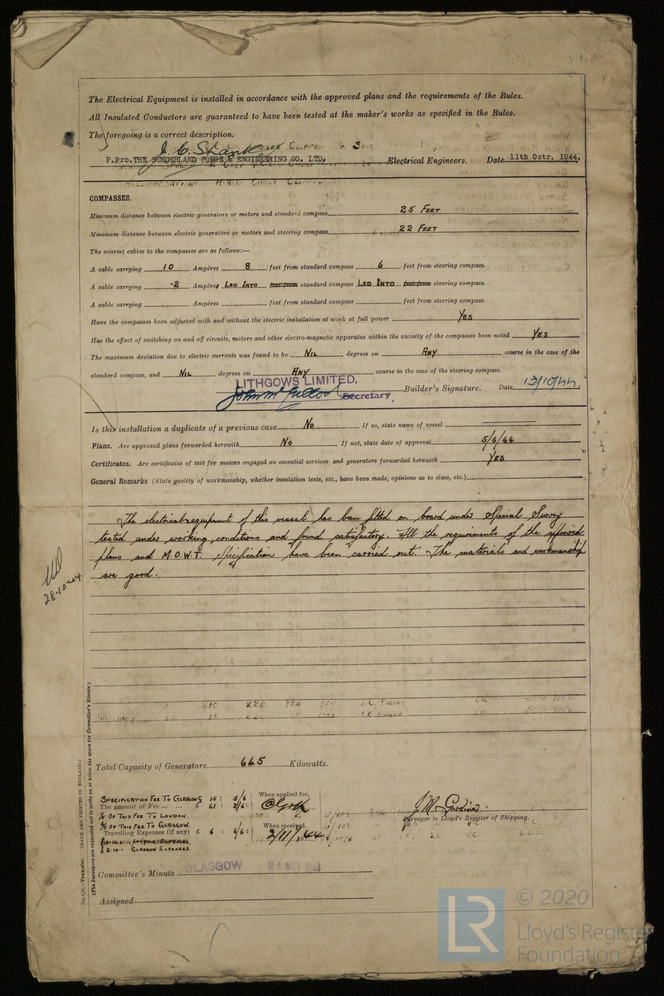 The Electrical Equipment is installed in accordance with the approved plans and the requirements of the Rules.
All Insulated Conductors are guaranteed to have been tested at the maker's works as specified in the Rules.
The foregoing is a correct description.
P.Pro. THE SUNDERLAND FORGE & ENGINEERING CO. LTD. Electrical Engineers. Date 11th Octr. 1944.
COMPASSES.
Minimum distance between electric generators or motors and standard compass 25 FEET
Minimum distance between electric generators or motors and steering compass 22 FEET
The nearest cables to the compasses are as follows:—
A cable carrying 10 Ampères 8 feet from standard compass 6 feet from steering compass.
A cable carrying .2 Ampères LED INTO feet from standard compass LED INTO feet from steering compass.
A cable carrying Ampères feet from standard compass feet from steering compass.
Have the compasses been adjusted with and without the electric installation at work at full power YES
Has the effect of switching on and off circuits, motors and other electro-magnetic apparatus within the vicinity of the compasses been noted YES
The maximum deviation due to electric currents was found to be NIL degrees on ANY course in the case of the
standard compass, and NIL degrees on ANY course in the case of the steering compass.
LITHGOWS LIMITED.
Secretary, Builder's Signature. Date 13/10/44
Is this installation a duplicate of a previous case No If so, state name of vessel
Plans. Are approved plans forwarded herewith No If not, state date of approval 5/6/44
Certificates. Are certificates of test for motors engaged on essential services and generators forwarded herewith YES
General Remarks (State quality of workmanship, whether insulation tests, etc., have been made, opinions as to class, etc.)
The electrical equipment of this vessel has been fitted on board under Special Survey
tested under working conditions and found satisfactory. All the requirements of the approved
plans and M.O.W.T. Specification have been carried out. The materials and workmanship
are good.
28-10-44
Total Capacity of Generators 665 Kilowatts.
SPECIFICATION FEE TO GLASGOW 15 : 5/6 : When applied for,
The amount of Fee ... £ 61 : 2/6 :
OF THIS FEE TO LONDON.
OF THIS FEE TO GLASGOW. When received,
Travelling Expenses (if any) £ 6 : 6/6 : 2/11/44
£2.10 - GLASGOW EXPENSES.
J.M. Gardiner.
Surveyor to Lloyd's Register of Shipping.
Committee's Minute GLASGOW
Assigned
(MADE AND PRINTED IN ENGLAND.)
(The Surveyors are requested not to write on or below the space for Committee's Minute.)
LR
© 2020
Lloyd's Register
Foundation